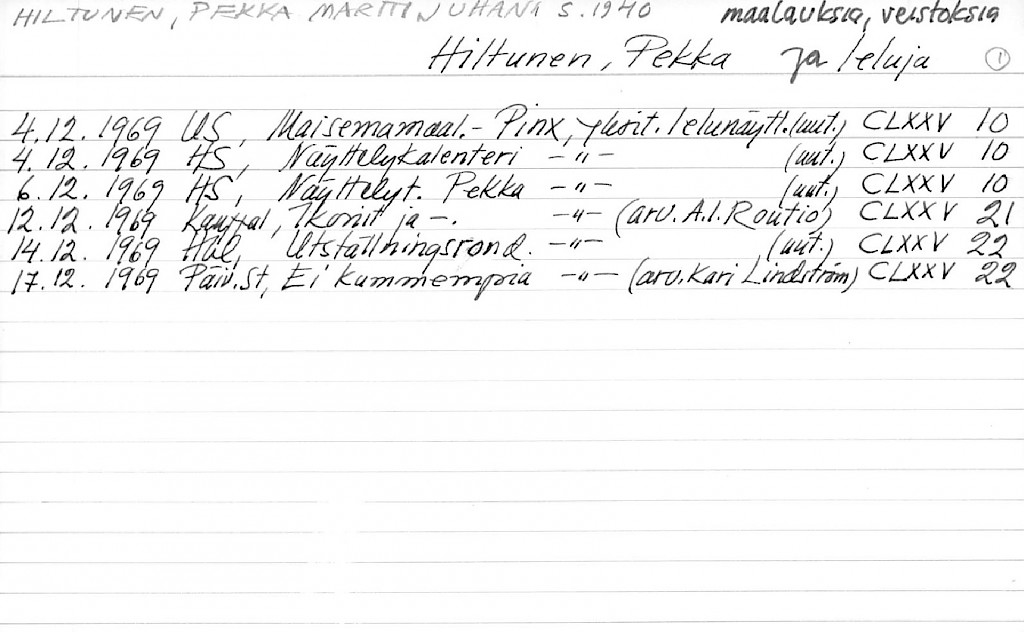 HILTUNEN, PEKKA MARTTI JUHANI S. 1940 maalauksia, veistoksia
Hiltunen, Pekka ja leluja 1
4.12. 1969 US, Maisemamaal. - Pinx, yksit. lelunäytt. (uut.) CLXXV 10
4.12. 1969 HS, Näyttelykalenteri -"- (uut.) CLXXV 10
6.12. 1969 HS, Näyttelyt. Pekka -"- (uut.) CLXXV 10
12.12. 1969 Ikonit ja -. -"- (arv. A.I. Routio) CLXXV 21
14.12. 1969 Hbl, Utställningsrond. -"- (uut.) CLXXV 22
17.12. 1969 Päiv.St, Ei kummempia -"- (arv. Kari Lindström) CLXXV 22